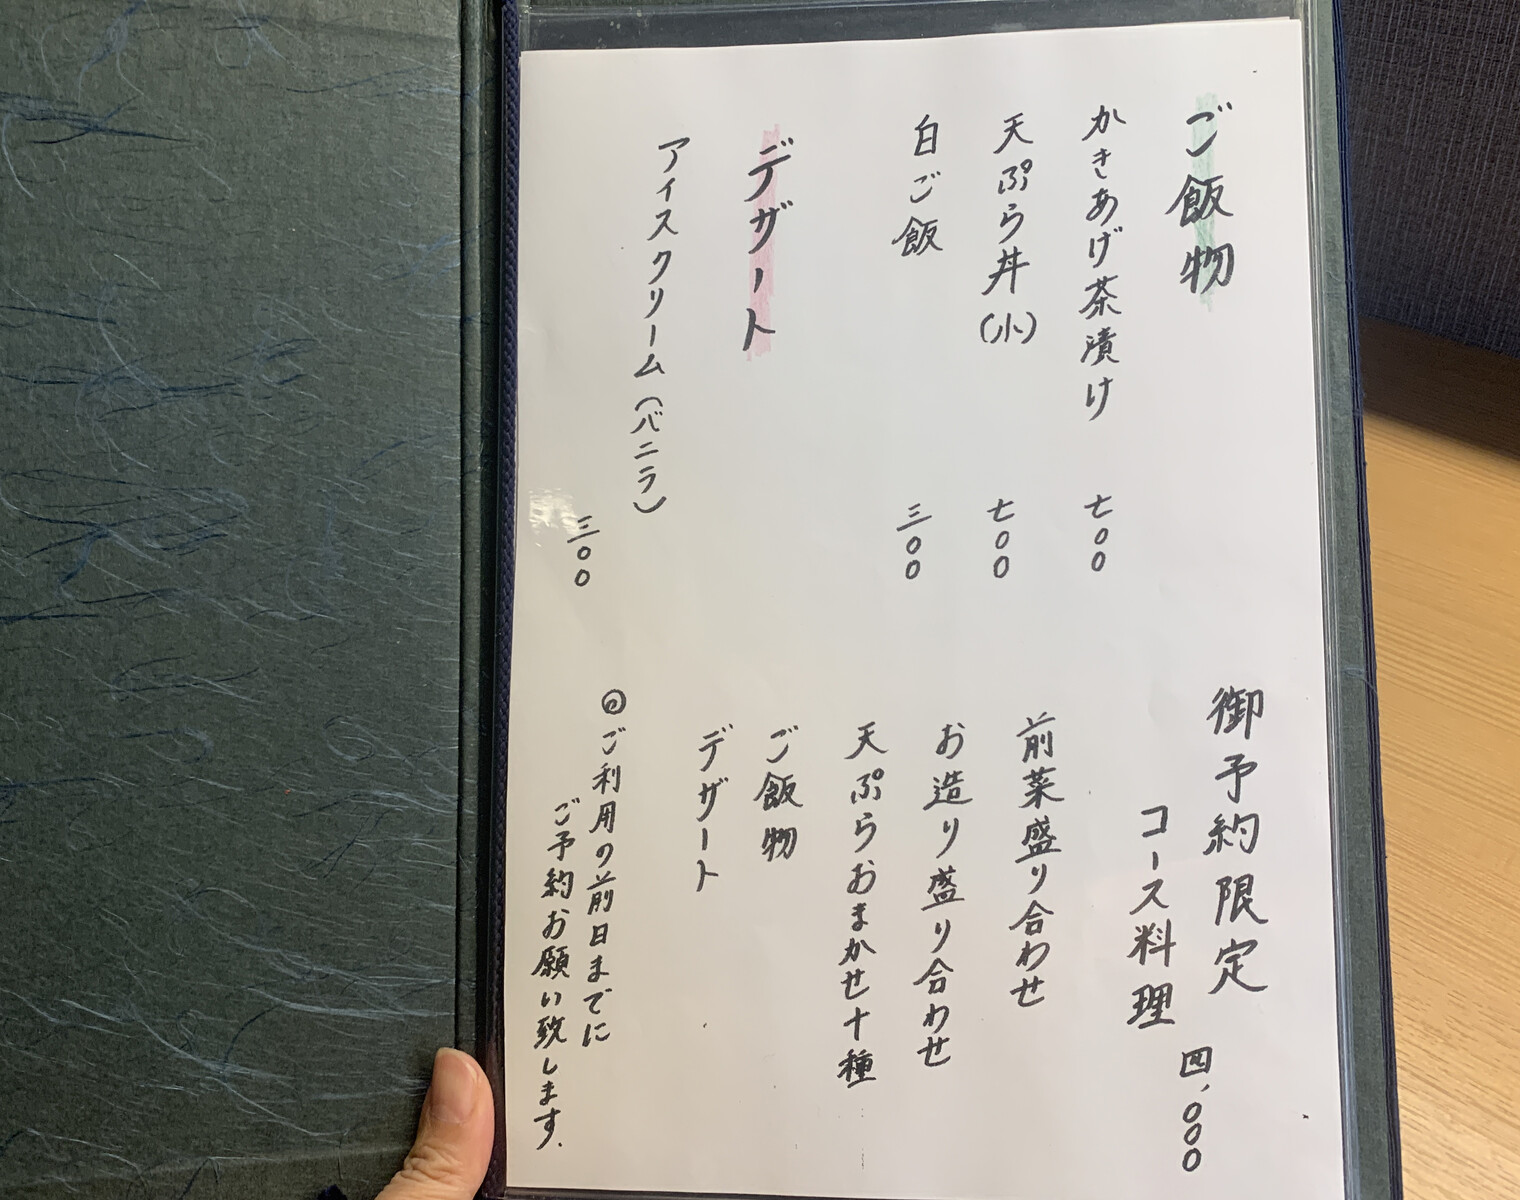 ご飯物
かきあげ茶漬け 七〇〇
天ぷら丼(小) 七〇〇
白ご飯 三〇〇
デザート
アイスクリーム(バニラ)
三〇〇
御予約限定
コース料理 四,〇〇〇
前菜盛り合わせ
お造り盛り合わせ
天ぷらおまかせ十種
ご飯物
デザート
◎ご利用の前日までに
ご予約お願い致します.